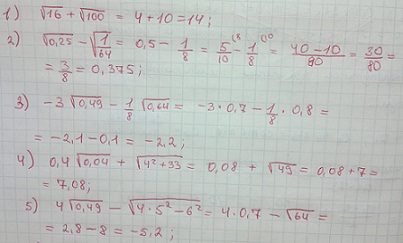 1) √16 + √100 = 4 + 10 = 14;
2) √0,25 − √1/64 = 0,5 − 1/8 = 5/10 (8 − 1/8 (10 = 40−10/80 = 30/80 =
= 3/8 = 0,375;
3) −3 √0,49 − 1/8 √0,64 = −3·0,7 − 1/8 · 0,8 =
= −2,1 − 0,1 = −2,2;
4) 0,4 √0,04 + √4² + 33 = 0,08 + √49 = 0,08 + 7 =
= 7,08;
5) 4 √0,49 − √4·5² − 6² = 4·0,7 − √64 =
= 2,8 − 8 = −5,2;